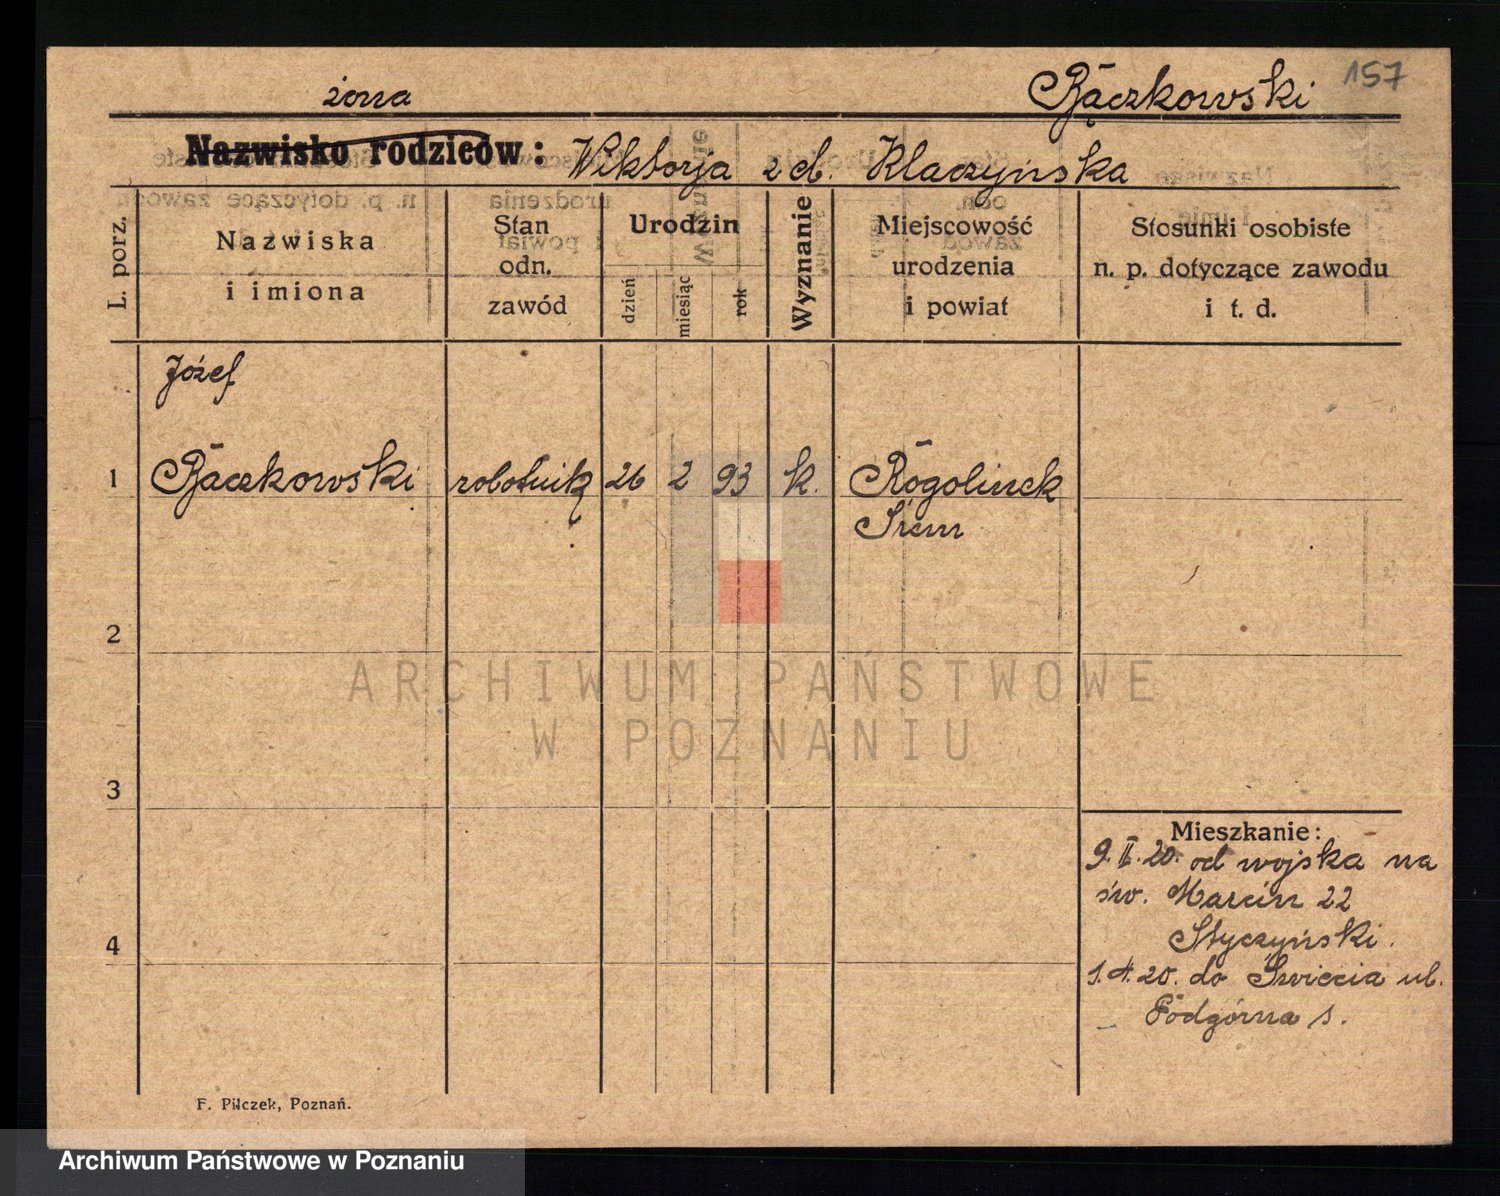 żona
Bączkowski 157
Nazwisko rodziców: Wiktorja z d. Klaczyńska
L. porz.
Nazwiska
i imiona
Stan
odn.
zawód
Urodzin
dzień
miesiąc
rok
Wyznanie
Miejscowość
urodzenia
i powiat
Stosunki osobiste
n. p. dotyczące zawodu
i t. d.
Józef
1 Bączkowski robotnik 26 2 93 k. Rogolinek
Śrem
2
3
4
Mieszkanie:
9.II.20. od wojska na
św. Marcin 22
Styczyński.
20. do Świecia ul.
Podgórna 1.
F. Pilczek, Poznań.
ARCHIWUM PAŃSTWOWE
W POZNANIU
Archiwum Państwowe w Poznaniu